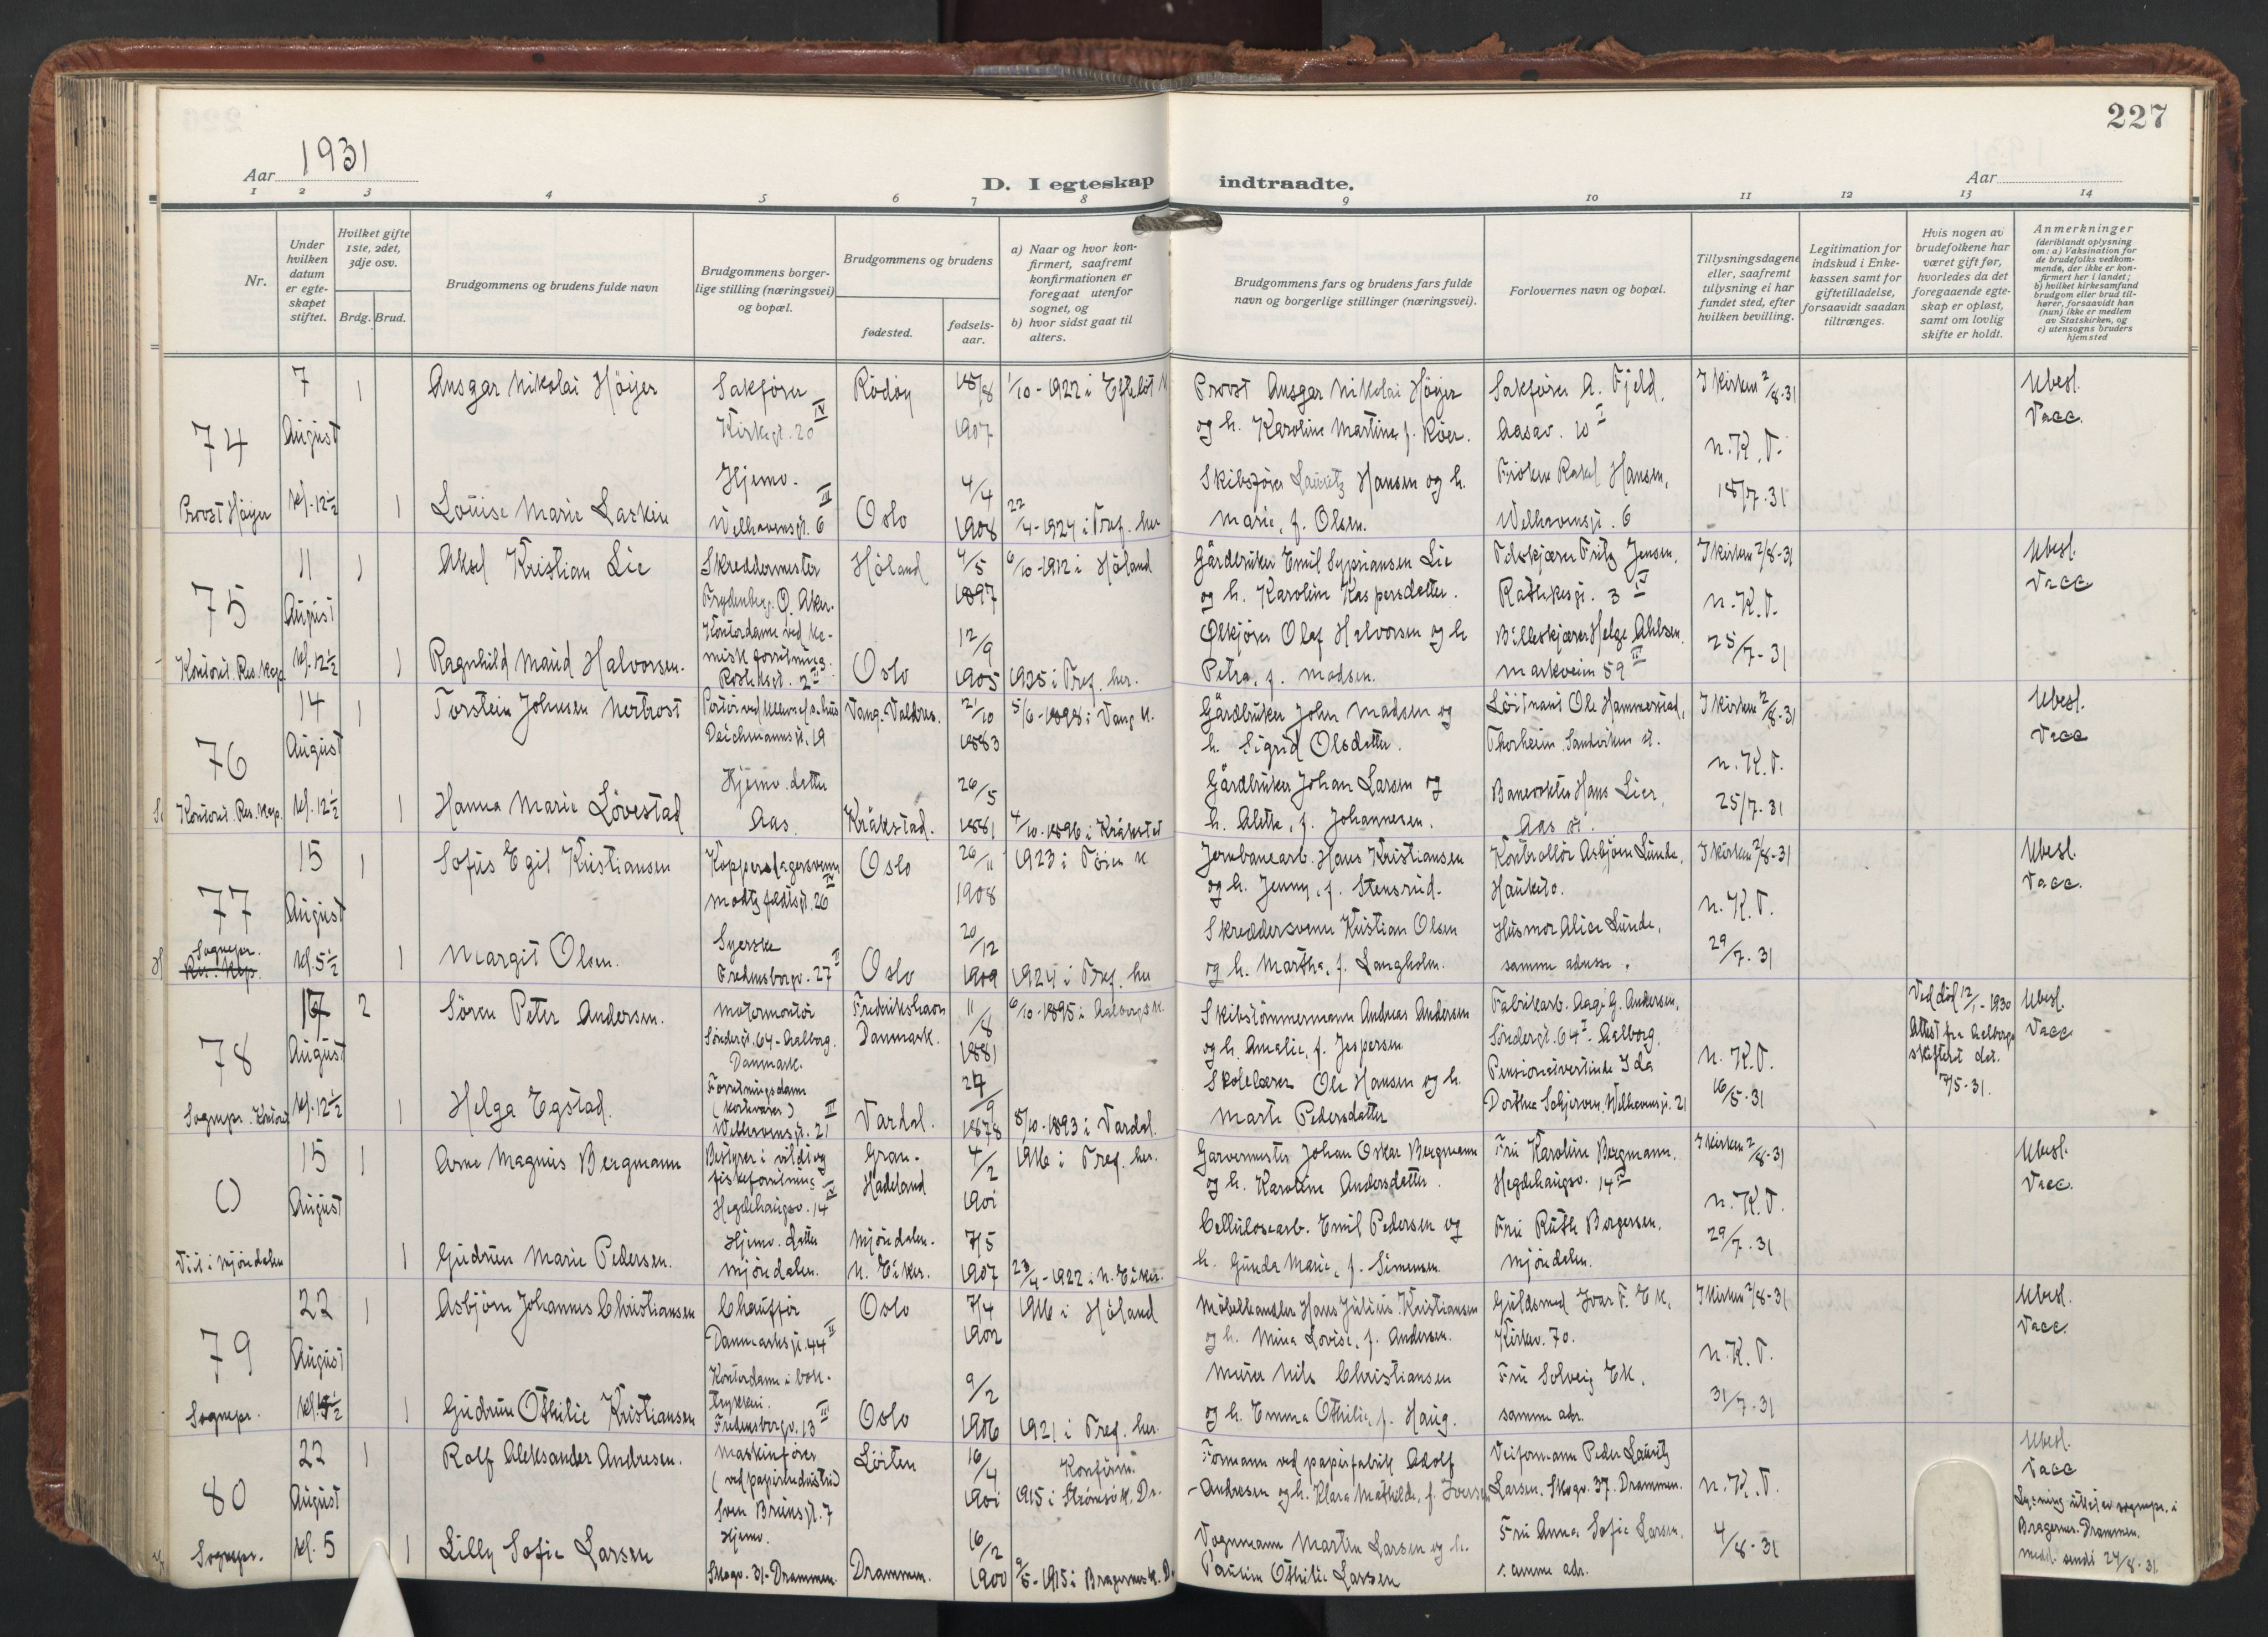 227
Aar 1931
D. I egteskap indtraadte.
Aar
1 2 3 4 5 6 7 8 9 10 11 12 13 14
Nr.
Under hvilken datum er egte-skapet stiftet.
Hvilket gifte 1ste, 2det, 3dje osv.
Brdg. Brud.
Brudgommens og brudens fulde navn
Brudgommens borger-lige stilling (næringsvei) og bopæl.
Brudgommens og brudens
fødested.
fødsels-aar.
a) Naar og hvor kon-firmert, saafremt konfirmationen er foregaat utenfor sognet, og
b) hvor sidst gaat til alters.
Brudgommens fars og brudens fars fulde navn og borgerlige stillinger (næringsvei).
Forlovernes navn og bopæl.
Tillysningsdagene eller, saafremt tillysning ei har fundet sted, efter hvilken bevilling.
Legitimation for indskud i Enke-kassen samt for giftetilladelse, forsaavidt saadan tiltrænges.
Hvis nogen av brudefolkene har været gift før, hvorledes da det foregaaende egte-skap er opløst, samt om lovlig skifte er holdt.
Anmerkninger
(deriblandt oplysning om: a) Vaksination for de brudefolks vedkom-mende, der ikke er kon-firmert her i landet; b) hvilket kirkesamfund brudgom eller brud til-hører, forsaavidt han (hun) ikke er medlem av Statskirken, og c) utensogns bruders hjemsted
74
Provst Høyer
7 August kl. 12½
1
Ansgar Nikolai Höyer
Sakfører Kirkegt. 20 IV
Rödöy
18/8 1907
1/10-1922 i Eftelöt k
Provst Ansgar Nikolai Höyer
og h. Karoline Martine f. Röer.
Sakfører A. Fjeld,
Aasav. 10 I
I kirken 2/8-31
n.K.T.
18/7-31
Ubesl.
Vacc.
1
Louise Marie Larkin
Hjemv.
Welhavensgt. 6 III
Oslo
4/4 1908
22/4-1924 i Tref. her
Skibsfører Lauritz Hansen og h.
Marie, f. Olsen.
Frøken Rakel Hansen,
Welhavensgt. 6
75
11 August kl. 12½
1
Aksel Kristian Lie
Skreddermester
Frydenberg. Ø. Aker.
Höland
4/5 1897
6/10-1912 i Höland
Gårdbruker Emil Sypriansen Lie
og h. Karoline Kaspersdatter.
Fritz Jensen,
Rathkesgt. 3 IV
I kirken 2/8-31
n.K.T.
25/7-31
Ubesl.
Vacc
Kontoret. Res. Kap.
1
Ragnhild Maud Halvorsen.
Kontordame ved ke-
misk forretning.
Oslo
12/9 1905
1925 i Tref. her.
Ølkjører Olaf Halvorsen og h
Petra, f. Madsen.
Billedskjærer Helge Ahlsen.
Markveien 59 III
76
14 August kl. 12½
1
Torstein Johnsen Nertrost
Deichmannsgt. 19
Vang. Valdres.
21/10 1883
5/6-1898 i Vang k.
Gårdbruker John Madsen og
h. Sigrid Olsdatter.
Löitnant Ole Hammerstad,
Thorheim Sandviken st.
I kirken 2/8-31
n.K.T.
25/7-31
Ubesl.
Vacc
Kontoret. Res. Kap.
1
Hanna Marie Lövestad
Hjemv. datter
Aas.
Kråkstad.
26/5 1881
4/10-1896 i Kråkstad
Gårdbruker Johan Larsen og
h. Alette, f. Johannesen.
Banevokter Hans Lier,
Aas st.
77
15 August kl. 5½
1
Sofus Egil Kristiansen
Kopperslagersvenn
Motzfeldtsgt. 26 IV
Oslo
26/11 1908
1923 i Töien k
Jernbanearb. Hans Kristiansen
og h. Jenny, f. Stensrud.
Kontrollör Asbjörn Lunde,
Hauketo.
I kirken 2/8-31
n.K.T.
29/7-31
Ubesl.
Vacc.
Sognepr.
Res. Kap.
1
Margit Olsen.
Syerske
Fredensborgv. 27 II
Oslo
20/12 1909
1924 i Tref. her
Skreddersvenn Kristian Olsen
og h. Martha, f. Langholm.
Husmor Alice Lunde,
samme adresse.
78
August kl. 12½
2
Sören Peter Andersen.
Motormontör
Söndergt. 64 - Aalborg.
Danmark.
Fredrikshavn
Danmark.
11/8 1881
6/10-1895 i Aalborg k.
Skibstömmermann Andreas Andersen
og h. Amalie, f. Jespersen
Fabrikarb. Aage G. Andersen,
Söndergt. 64 I - Aalborg.
n.K.T.
16/5-31
Ved död 12/1-1930
Attest fra Aalborg
skifteret dat.
7/5-31.
Ubesl.
Vacc
Sognepr. Kontoret
1
Helga Egstad.
Forretningsdame
(kortevarer)
Welhavensgt. 21 III
Vardal.
27/9 1878
8/10-1893 i Vardal.
Skolelærer Ole Hansen og h.
Marte Pedersdatter
Pensionatvertinde Ida
Dorthea Welhavensgt. 21
0
Viet i Mjöndalen
15 August
1
Arne Magnus Bergmann
Bestyrer i vildt og
fiskeforretning
Hegdehaugsv. 14 IV
Gran.
Hadeland
4/2 1901
1916 i Tref. her.
Garvermester Johan Oskar Bergmann
og h. Karoline Andersdatter.
Fru Karoline Bergmann.
Hegdehaugsv. 14 IV
I kirken 2/8-31
n.K.T.
29/7-31
Ubesl.
Vacc.
1
Gudrun Marie Pedersen.
Hjemv. datter
Mjöndalen.
Mjöndalen.
N. Eiker.
7/5 1907
23/4-1922 i N. Eiker.
Cellulosearb. Emil Pedersen og
h. Gunda Marie, f. Simensen.
Fru Ruth Borgersen,
Mjöndalen.
79
22 August
1
Asbjörn Johannes Christiansen
Chaufför
Danmarksgt. 44 II
Oslo
7/4 1902
1916 i Höland
Möbelhandler Hans Julius Kristiansen
og h. Mina Lovise, f. Andersen.
Guldsmed Ivar F. Ek,
Kirkev. 70.
I kirken 2/8-31
n.K.T.
31/7-31
Ubesl.
Vacc.
Sognepr.
1
Gudrun Othilie Kristiansen
Kontordame i bok-
trykkeri.
Fredensborgv. 13 III
Oslo
9/2 1906
1921 i Tref. her.
Murer Nils Christiansen
og h. Emma Othilie, f. Haug.
Fru Solveig Ek,
samme adr.
80
22 August kl. 5
1
Rolf Aleksander Andresen.
Maskinfører
(ved papirindustri)
Sven Brunsgt. 7
Löiten
16/4 1901
Konfirm.
1915 i Strömsö k. Dr.
Formann ved papirfabrik Adolf
Andresen og h. Klara Mathilde, f. Iversen
Veiformann Peder Lauritz
Larsen. Skogv. 37. Drammen.
n.K.T.
4/8-31
Ubesl.
Vacc
Lysning utstedt av sognepr. i
Bragernes. Drammen.
Medd. sendt 24/8-31.
Sognepr.
1
Lilly Sofie Larsen
Hjemv.
Skogv. 31 - Drammen.
Drammen.
16/2 1900
1915 i Bragernes k. D.
Vognmann Martin Larsen og h.
Pauline Othilie Larsen
Fru Anna Sofie Larsen,
samme adr.